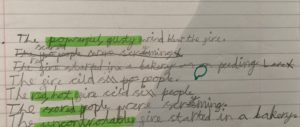 The powerful, gusty wind blew the fire.
The people were screaming
The fire started in a bakery on pudding Lane
The fire cild six pepople.
The red hot fire cild six people
The people were screaming.
The uncontrolable fire started in a bakery